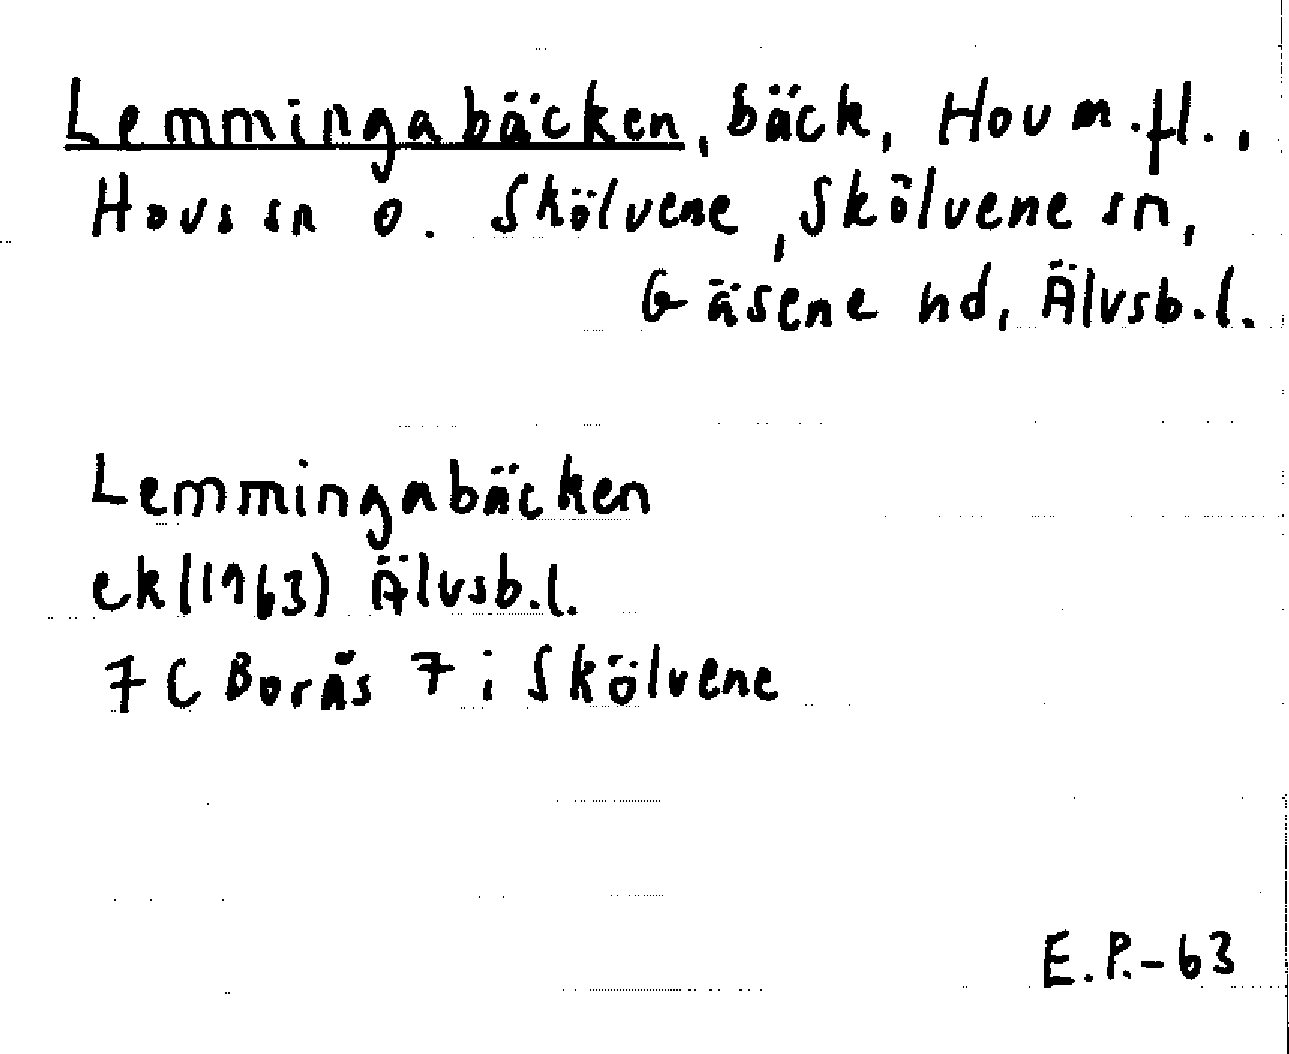 Lemmingabäcken, bäck, Hov m.fl.,
Hovs sn o. Skölvene, Skölvene sn,
Gäsene hd, Älvsb.l.
Lemmingabäcken
ek(1963) Älvsb.l.
7C Borås 7 i Skölvene
E.P.-63